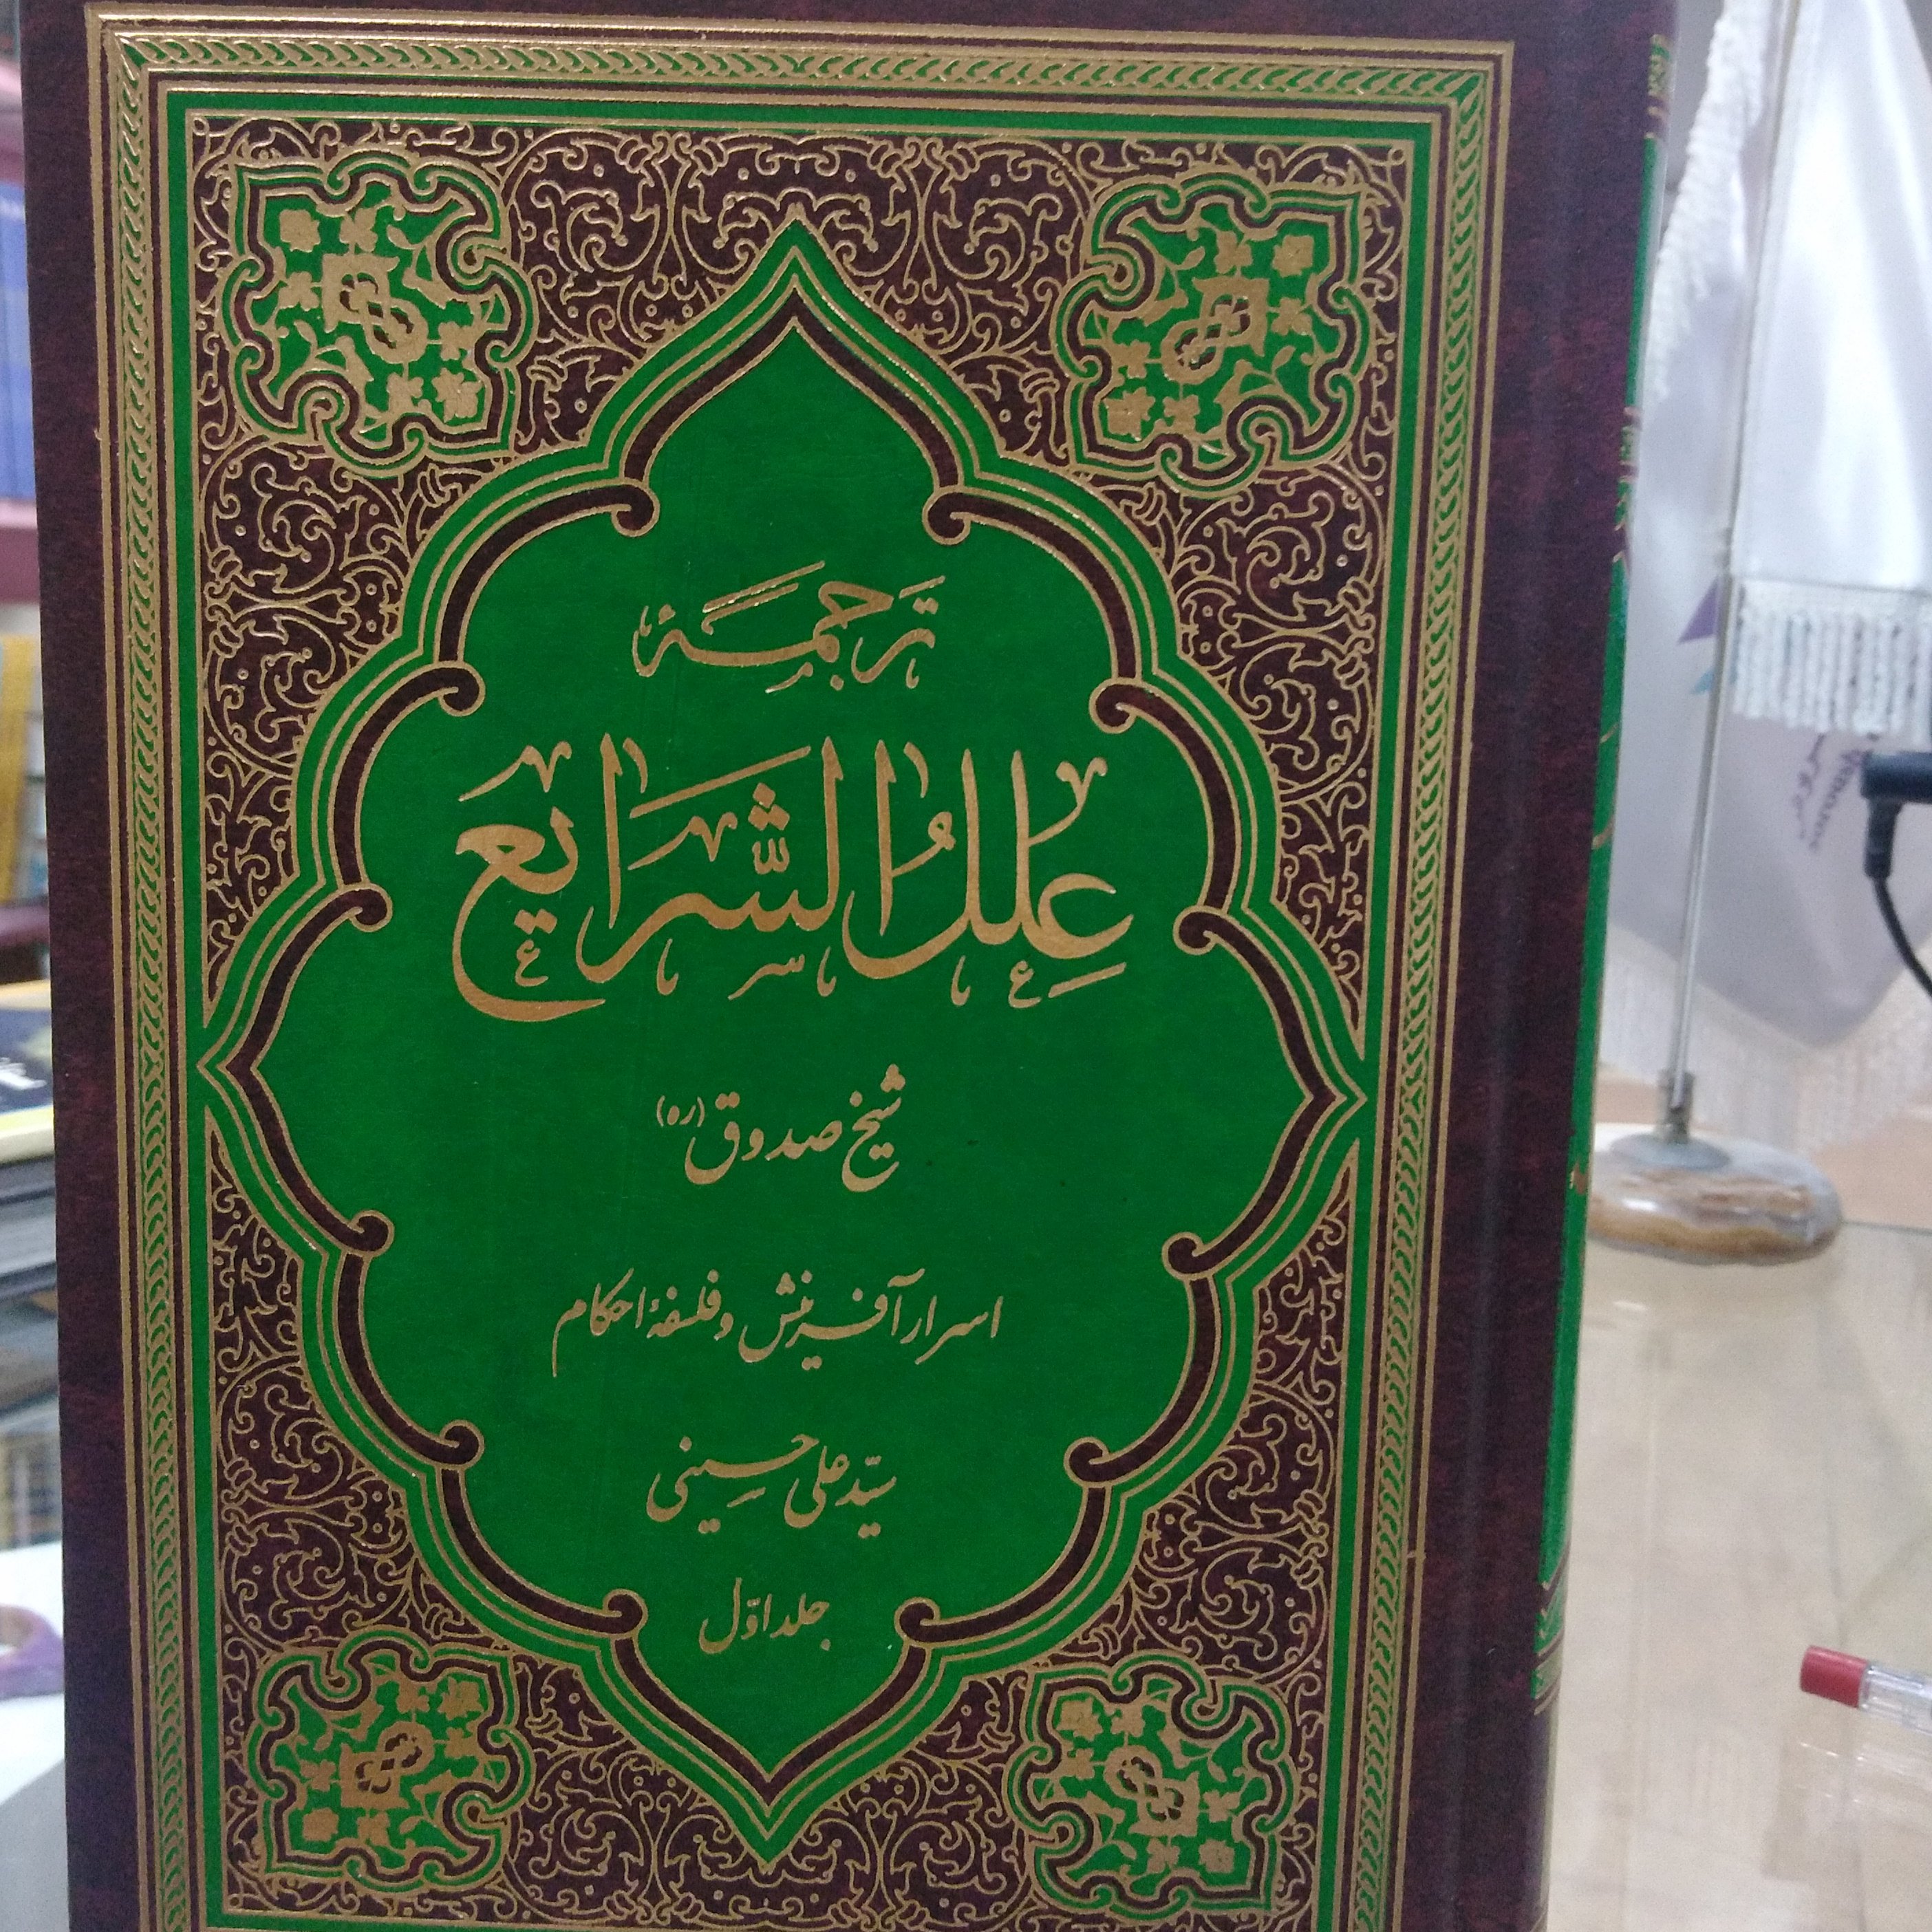 ترجمۀ
عِلَلُ الشَّرایِع
شیخ صدوق (ره)
اسرار آفرینش و فلسفۀ احکام
سیّد علی حسینی
جلد اوّل